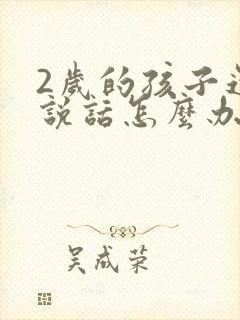 2歲的孩子還
說話怎麼办
吴成荣